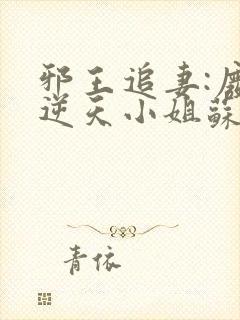 邪王追妻:
逆天小姐蘇
青依